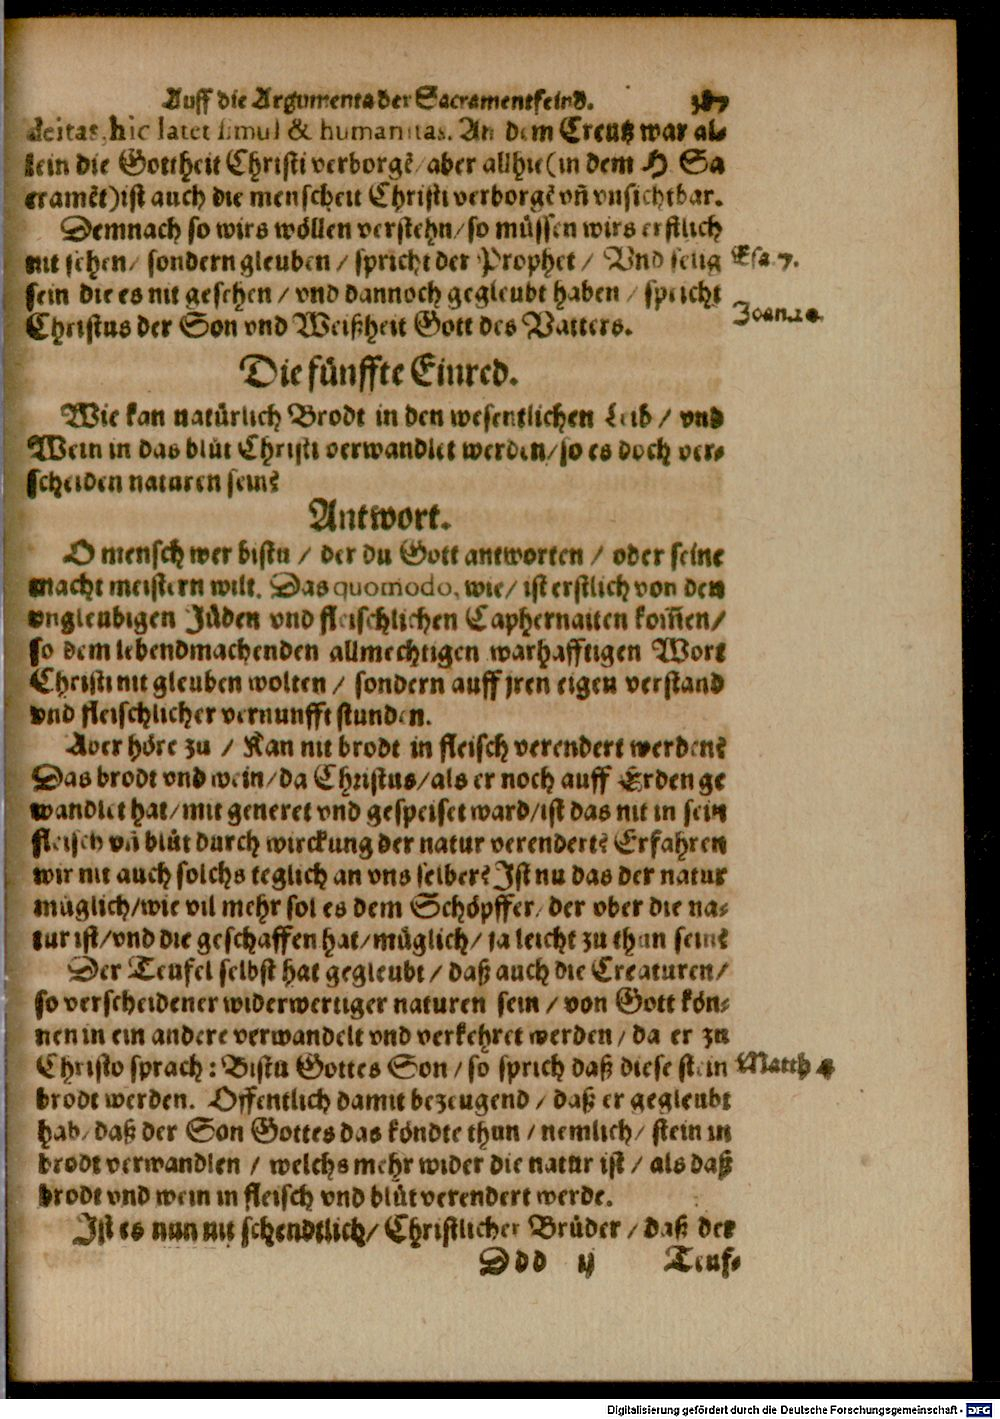 Auff die Argumenta der Sacramentfeind. 387
deitas, hic latet simul & humanitas. An dem Creutz war al⸗
lein die Gottheit Christi verborgē/ aber allhie (in dem H Sa
cramēt) ist auch die menscheit Christi verborgē vñ vnsichtbar.
Demnach so wirs wöllen verstehn/ so müssen wirs erstlich
nit sehen/ sondern gleuben/ spricht der Prophet/ Vnd selig
Esa. 7.
sein die es nit gesehen/ vnd dannoch gegleubt haben/ spricht
Christus der Son vnd Weißheit Gott des Vatters.
Joan. 20.
Die fünffte Einred.
Wie kan natürlich Brodt in den wesentlichen Leib/ vnd
Wein in das blůt Christi verwandlet werden/ so es doch ver⸗
scheiden naturen sein?
Antwort.
O mensch wer bistu/ der du Gott antworten/ oder seine
macht meistern wilt. Das quomodo, wie/ ist erstlich von den
vngleubigen Jüden vnd fleischlichen Caphernaiten kom̃en/
so dem lebendmachenden allmechtigen warhafftigen Wort
Christi nit gleuben wolten/ sondern auff jren eigen verstand
vnd fleischlicher vernunfft stunden.
Aber höre zu/ Kan nit brodt in fleisch verendert werden?
Das brodt vnd wein/ da Christus/ als er noch auff Erden ge
wandlet hat/ mit generet vnd gespeiset ward/ ist das nit in sein
fleisch vñ blůt durch wirckung der natur verendert? Erfahren
wir nit auch solchs teglich an vns selber? Ist nu das der natur
müglich/ wie vil mehr sol es dem Schöpffer/ der vber die na⸗
tur ist/ vnd die geschaffen hat/ müglich/ ja leicht zu thun sein?
Der Teufel selbst hat gegleubt/ daß auch die Creaturen/
so verscheidener widerwertiger naturen sein/ von Gott kön⸗
nen in ein andere verwandelt vnd verkehret werden/ da er zu
Christo sprach: Bistu Gottes Son/ so sprich daß diese stein
Matth 4
brodt werden. Offentlich damit bezeugend/ daß er gegleubt
hab/ daß der Son Gottes das köndte thun/ nemlich/ stein in
brodt verwandlen/ welchs mehr wider die natur ist/ als daß
brodt vnd wein in fleisch vnd blůt verendert werde.
Ist es nun nit schendtlich/ Christlicher Brüder/ daß der
Ddd ij Teuf⸗
Digitalisierung gefördert durch die Deutsche Forschungsgemeinschaft - DFG